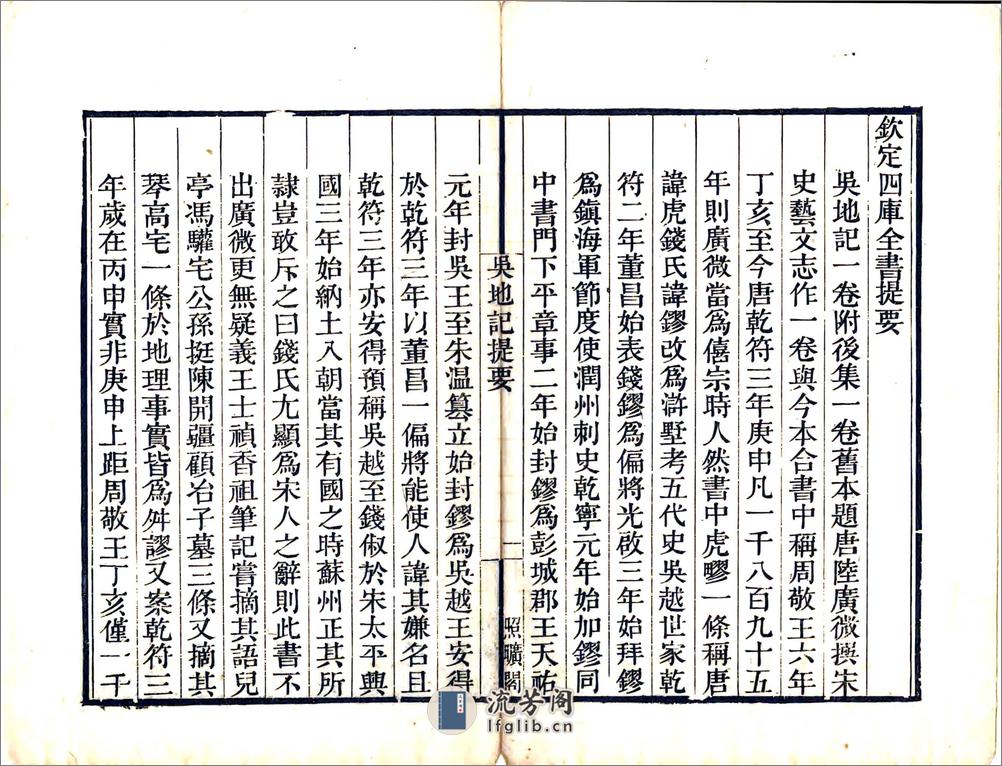 欽定四庫全書提要
吳地記一卷附後集一卷舊本題唐陸廣微撰宋
史藝文志作一卷與今本合書中稱周敬王六年
丁亥至今唐乾符三年庚申凡一千八百九十五
年則廣微當爲僖宗時人然書中虎疁一條稱唐
諱虎錢氏諱鏐改爲滸墅考五代史吳越世家乾
符二年董昌始表錢鏐爲偏將光啟三年始拜鏐
爲鎮海軍節度使潤州刺史乾寧元年始加鏐同
中書門下平章事二年始封鏐爲彭城郡王天祐
吳地記提要
一
照曠閣
元年封吳王至朱温篡立始封鏐爲吳越王安得
於乾符三年以董昌一偏將能使人諱其嫌名且
乾符三年亦安得預稱吳越至錢俶於朱太平興
國三年始納土入朝當其有國之時蘇州正其所
隷豈敢斥之曰錢氏尤顯爲宋人之辭則此書不
出廣微更無疑義王士禎香祖筆記嘗摘其語兒
亭馮驩宅公孫挺陳開疆顧冶子墓三條又摘其
琴高宅一條於地理事實皆爲舛謬又案乾符三
年歲在丙申實非庚申上距周敬王丁亥僅一千
流芳閣
lfglib.cn